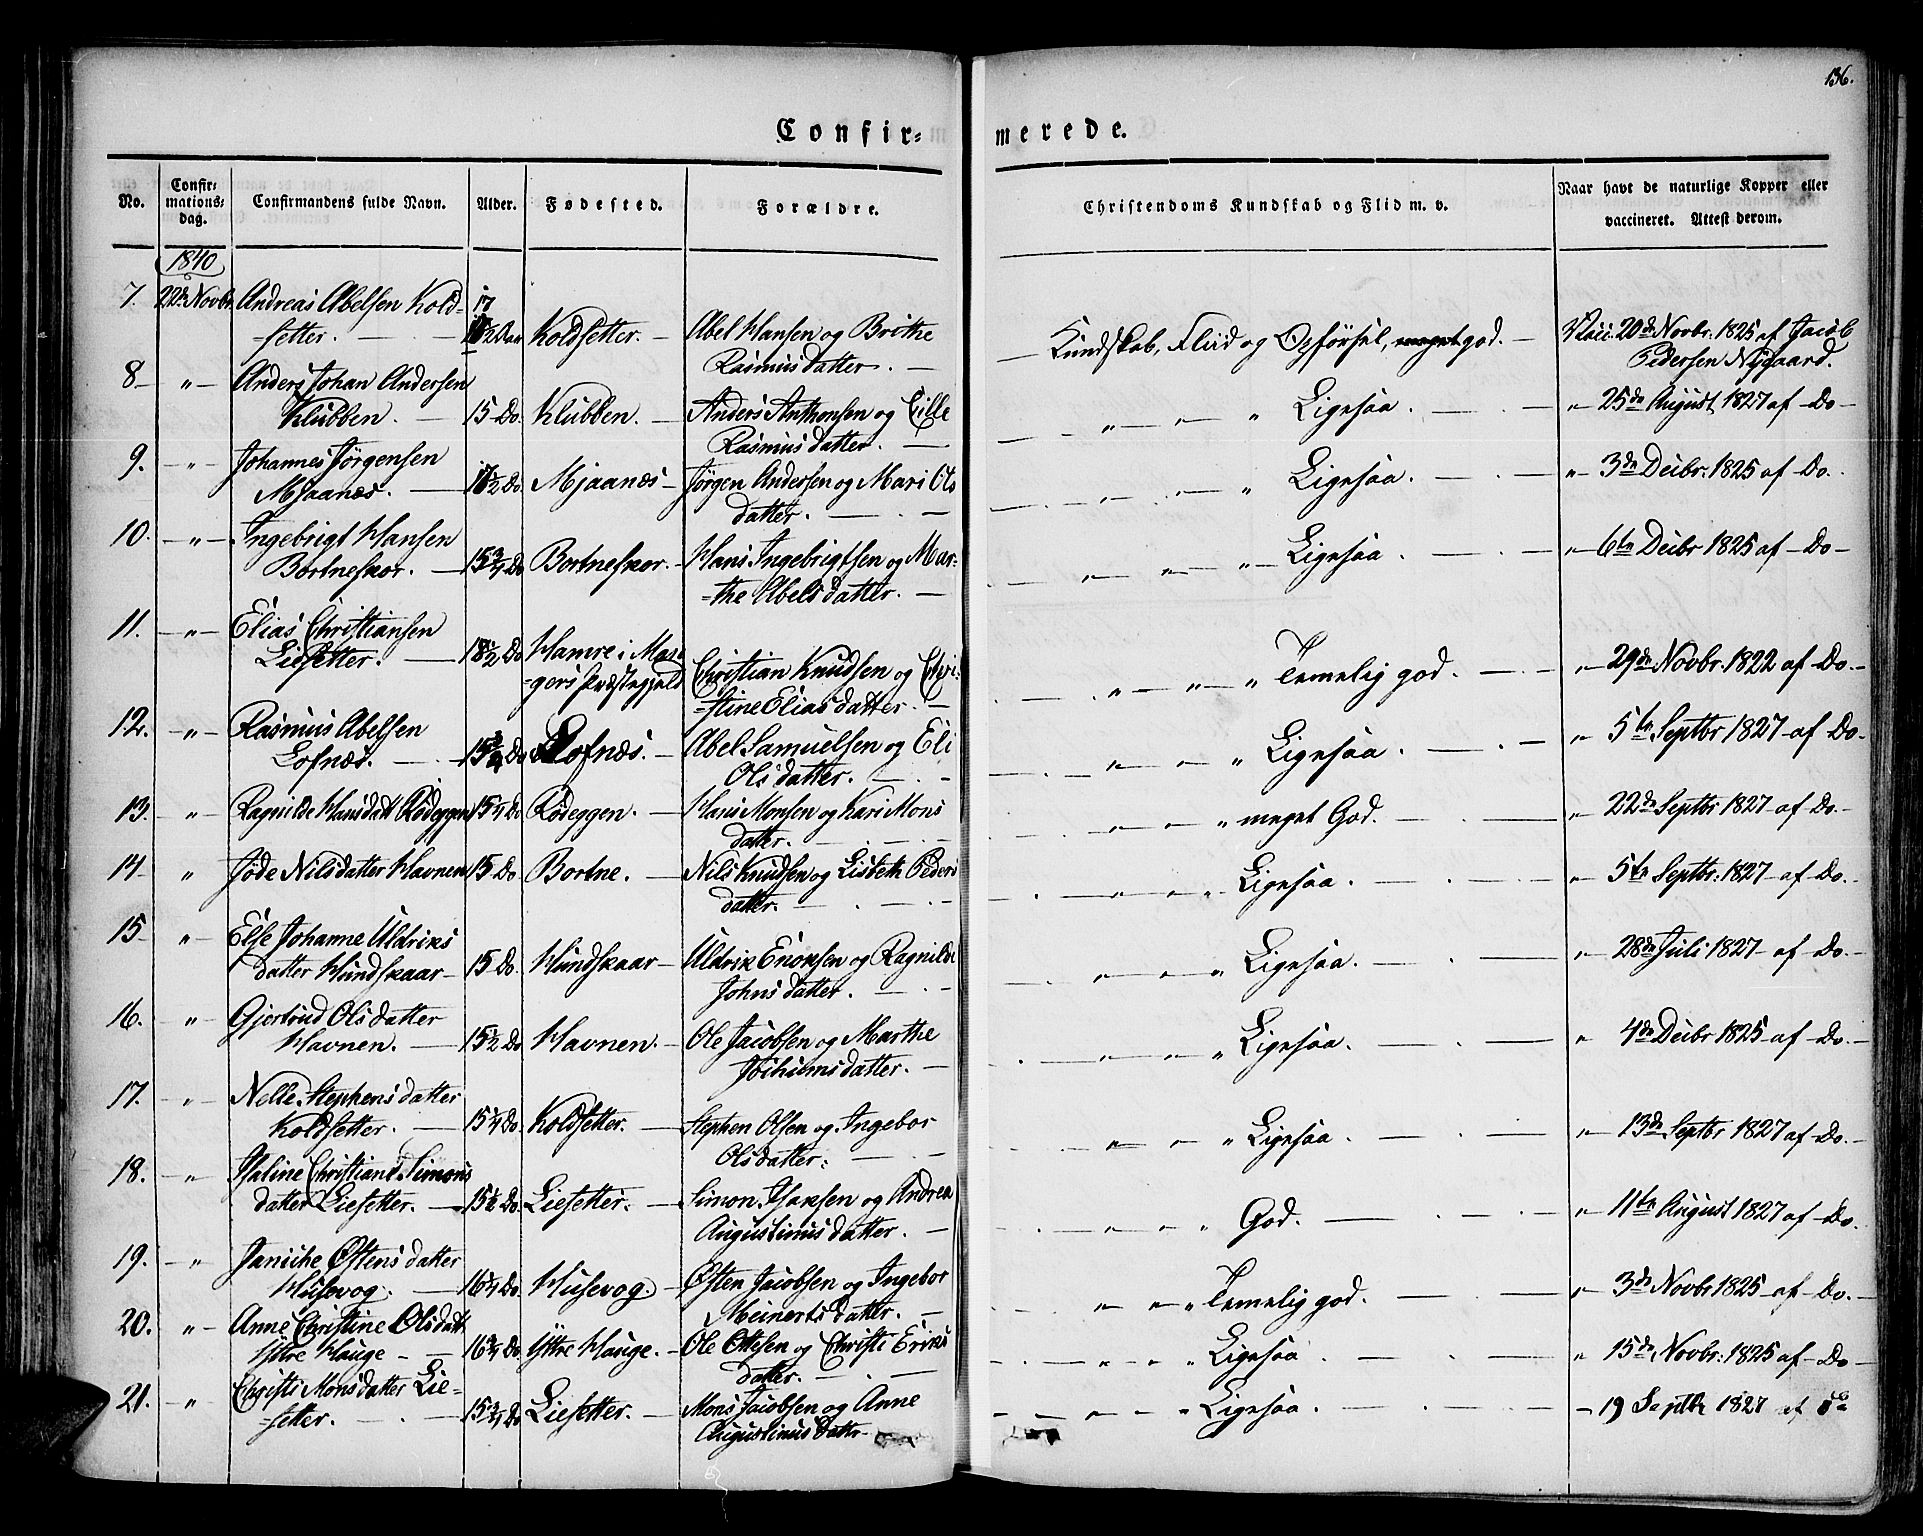 136.
Confir=
merede.
No.
Confir=
mations=
dag.
Confirmandens fulde Navn.
Alder.
Fødested.
Forældre.
Christendoms Kundskab og Flid m. v.
Naar havt de naturlige Kopper eller
vaccineret. Attest derom.
1840
7. 22de Novbr. Andreas Abelsen Kold-
-setter. 17 1/2 Aar Koldsetter. Abel Hansen og Brithe
Rasmusdatter.
Kundskab, Fliid og Opførsel, meget god. Vacc. 20de Novbr. 1825 af Jacob
Pedersen Nygaard.
8 " Anders Johan Andersen
Klubben. 15 Do. Klubben. Anders Anthonsen og Cille
Rasmusdatter.
" " Ligesaa. " 25de August 1827 af Do
9. " Johannes Jørgensen
Mjaanæs. 17 1/2 Do. Mjaanæs Jørgen Andersen og Mari Ols
datter.
" Ligesaa. " 3de Decbr. 1825 af Do.
10. " Ingebrigt Hansen
Bortneskor. 15 3/4 Do Bortneskor. Hans Ingebrigtsen og Mar-
-the Abelsdatter.
" " " Ligesaa. " 6te Decbr 1825 af Do
11. " Elias Christiansen
Liesetter. 18 1/2 Do Hamre i Man-
-gers Præstegjeld Christian Knudsen og Chri-
-stine Eliasdatter.
" " " Temelig god. " 29de Novbr. 1822 af Do.
12. " Rasmus Abelsen
Lofnæs. 15 3/4 Do Lofnæs. Abel Samuelsen og Eli
Olsdatter.
" " " Ligesaa. " 5te Septbr 1827 af Do.
13. " Ragnilde Hansdatt Rødeggen 15 1/4 Do Rødeggen. Hans Monsen og Kari Mons
datter.
" " " meget God. " 22de Septbr 1827 af Do.
14 " Jøde Nilsdatter Havnen 15 Do Bortne. Nils Knudsen og Lisbeth Peders
datter.
" " " Ligesaa. " 5te Septbr: 1827 af Do.
15 " Else Johanne Uldriks
datter Hundskaar 15 Do. Hundskaar Uldrik Enoksen og Ragnilde
Johnsdatter.
" " " Ligesaa. " 28de Juli 1827 af Do.
16. " Gjertrud Olsdatter
Havnen. 15 1/2 Do Havnen. Ole Jacobsen og Marthe
Jochumsdatter.
" " " Ligesaa. " 4de Decbr 1825 af Do.
17. " Nelle Stephensdatter
Koldsetter. 15 1/4 Do. Koldsetter. Stephen Olsen og Ingebor
Olsdatter.
" " " Ligesaa. " 13de Septbr 1827 af Do.
18. " Isaline Christiane Simons
datter Liesetter. 15 1/2 Do. Liesetter. Simon Isaksen og Andrea
Augustinusdatter.
" " " God. " 11te August 1827 af Do.
19. " Janiche Østensdatter
Husevog. 16 1/4 Do. Husevog. Østen Jacobsen og Ingebor
Meinertsdatter.
" " " Temelig god. " 3de Novbr 1825 af Do.
20. " Anne Christine Olsdatt
Ytre Hauge 16 3/4 Do Ytre Hauge. Ole Ottesen og Christi Eriks
datter.
" " " Ligesaa " 15de Novbr: 1825 af Do
21. " Christi Monsdatter Lie-
-setter. 15 3/4 Do Liesetter. Mons Jacobsen og Anne
Augustinusdatter
" " " Ligesaa. 19 Septbr 1827 af Do